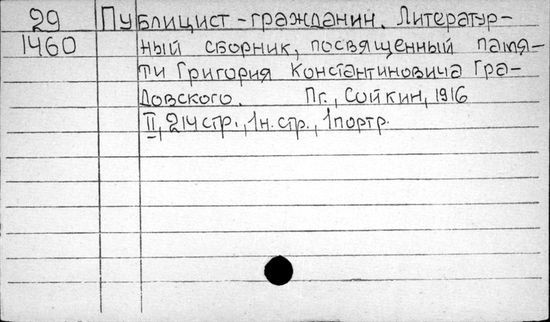 29 Публицист-гражданин. Литератур-
1460 ный сборник, посвященный памя-
ти Григория Константиновича Гра-
довского. Пг., Сойкин, 1916
II, 214 стр., 1 н. стр., 1 портр.